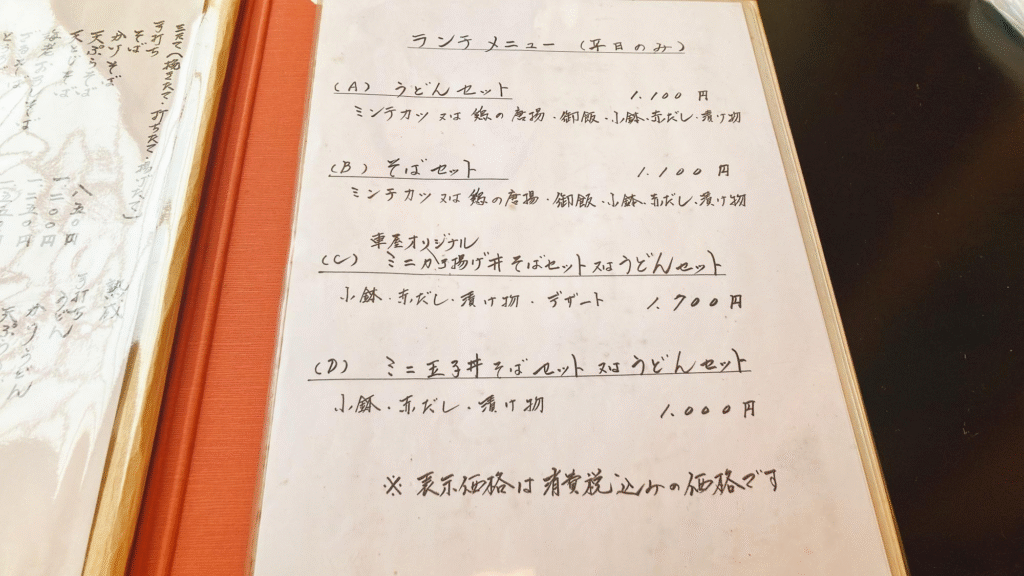 ランチメニュー (平日のみ)
(A) うどんセット 1.100円
ミンチカツ 又は 鶏の唐揚・御飯・小鉢・赤だし・漬け物
(B) そばセット 1.100円
ミンチカツ 又は 鶏の唐揚・御飯・小鉢・赤だし・漬け物
車屋オリジナル
(C) ミニかき揚げ丼そばセット又はうどんセット
小鉢・赤だし・漬け物・デザート 1.700円
(D) ミニ玉子丼そばセット又はうどんセット
小鉢・赤だし・漬け物 1.000円
※ 表示価格は消費税込みの価格です
手打ち
そば
かけそば
天ぷらそば
天とじそば